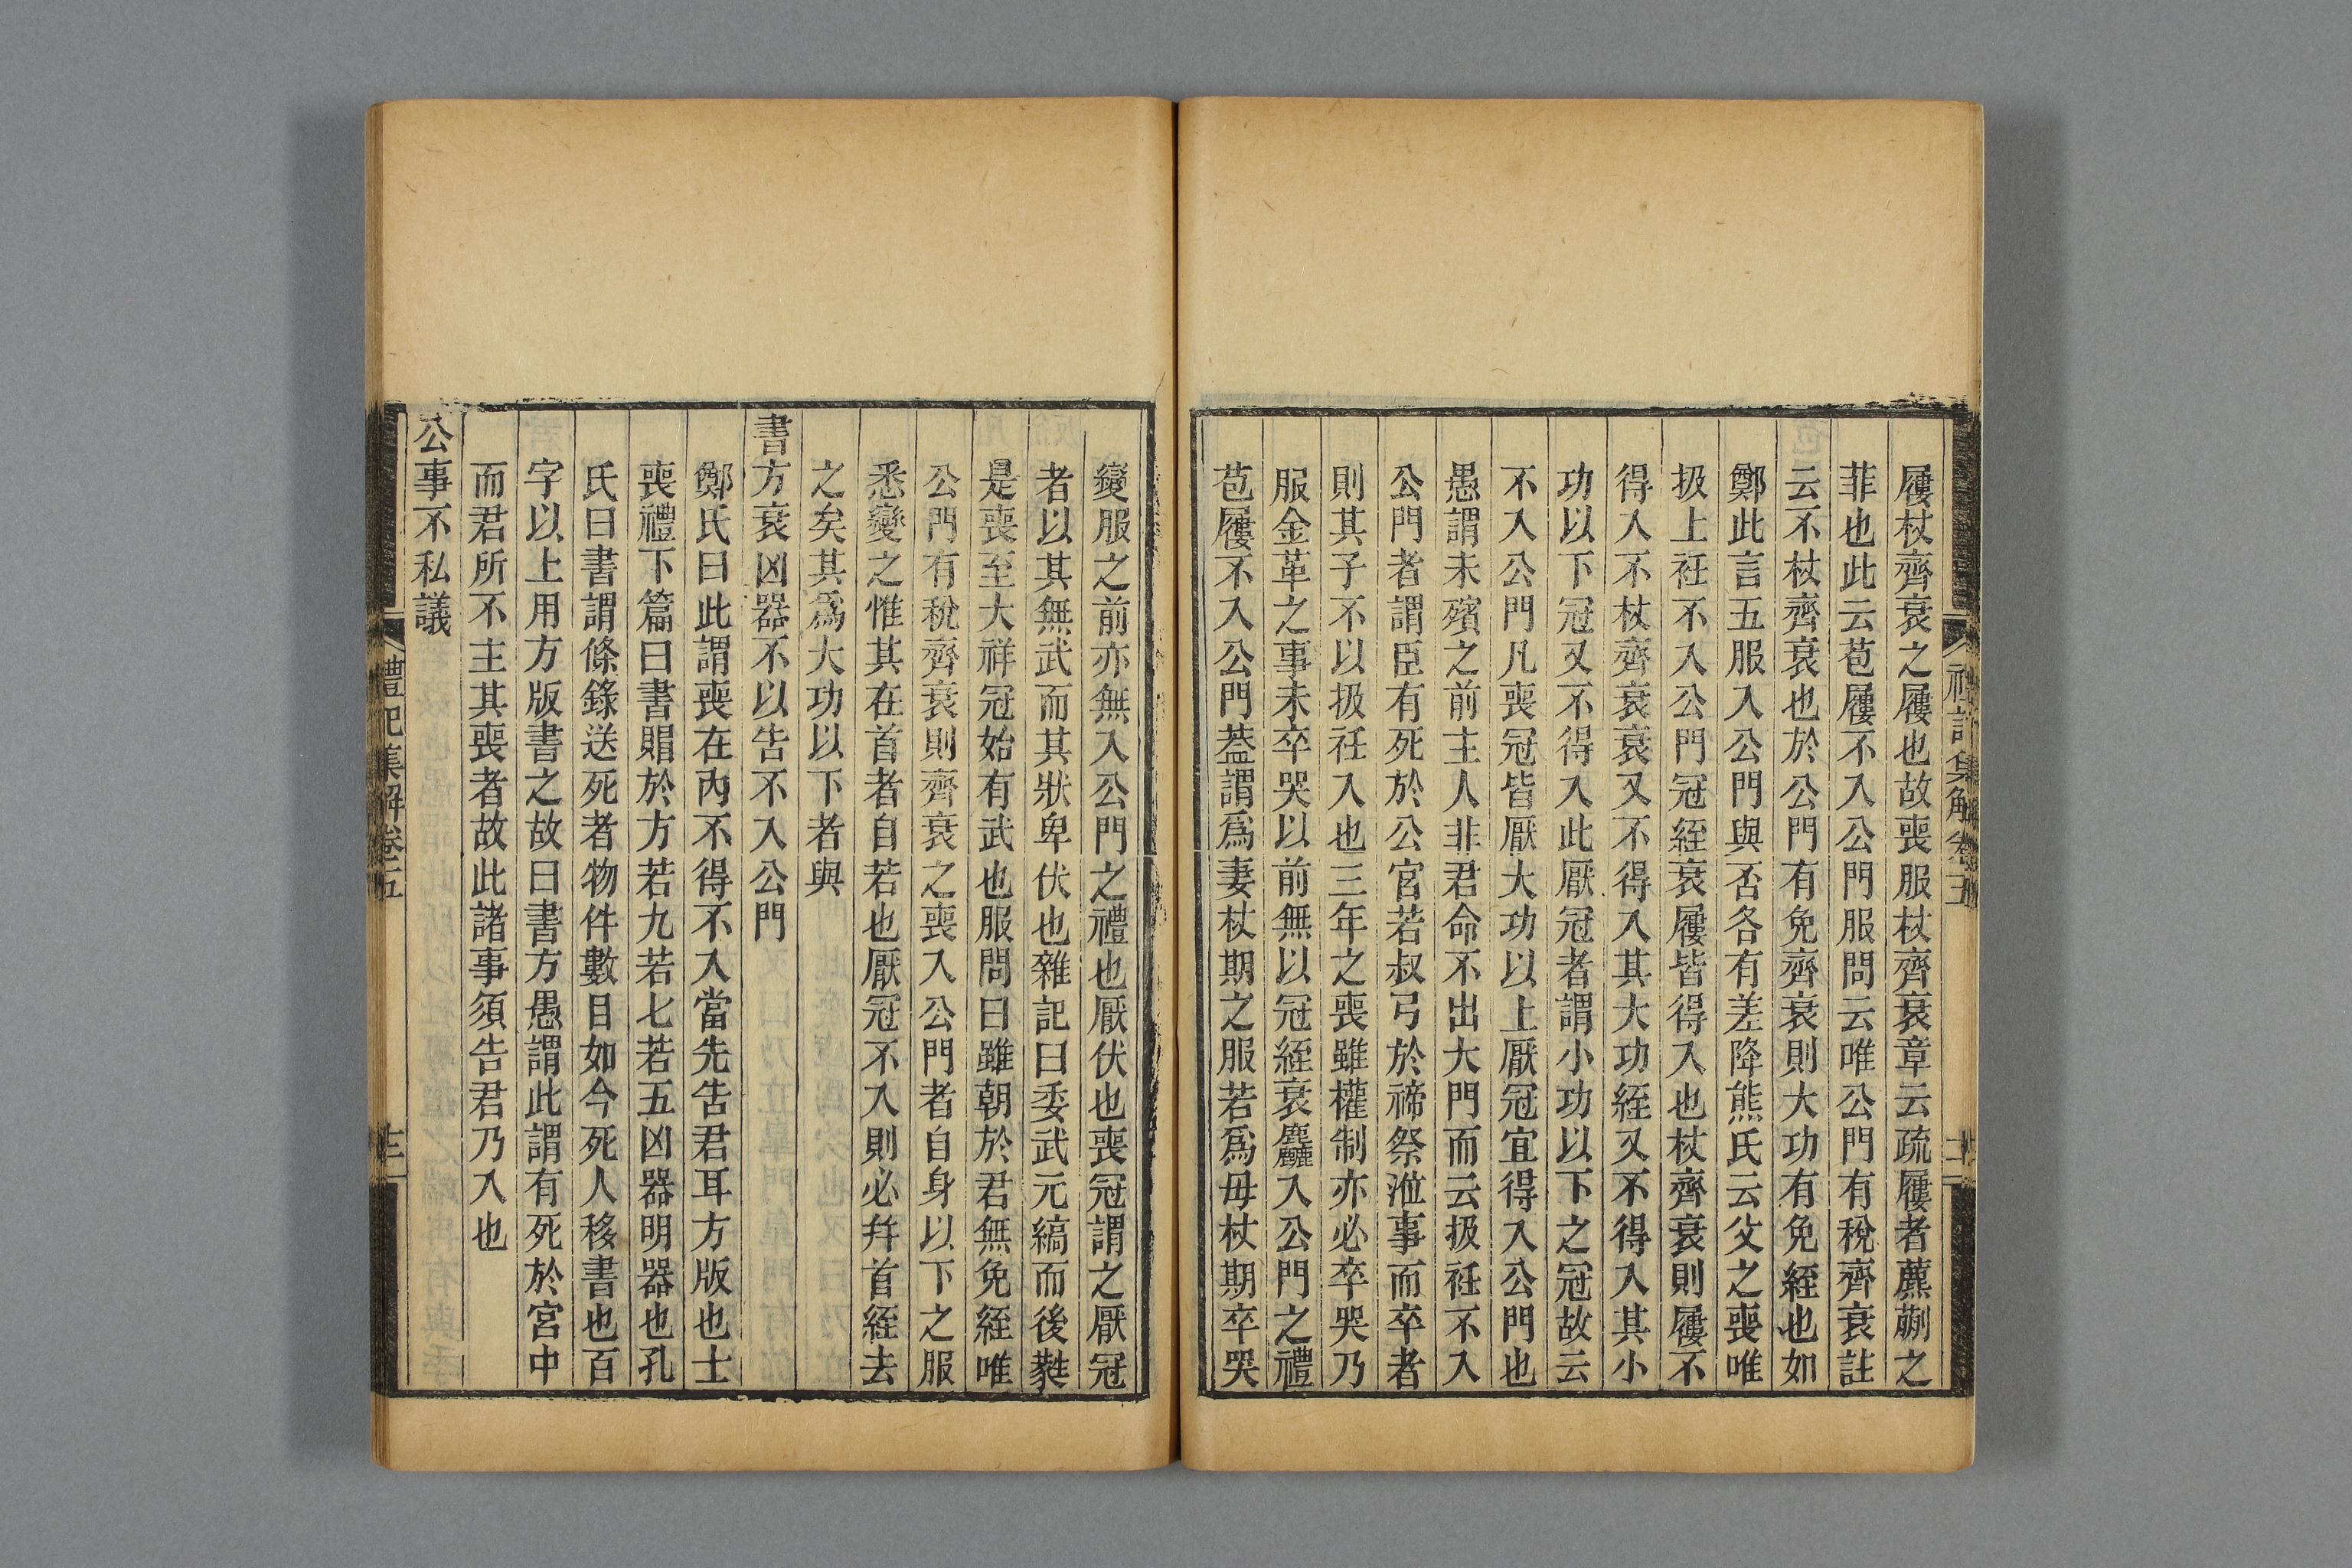 屨杖齊衰之屨也故喪服杖齊衰章云疏屨者藨蒯之
菲也此云苞屨不入公門服問云唯公門有稅齊衰註
云不杖齊衰也於公門有免齊衰則大功有免絰也如
鄭此言五服入公門與否各有差降熊氏云父之喪唯
扱上衽不入公門冠絰衰屨皆得入也杖齊衰則屨不
得入不杖齊衰衰又不得入其大功絰又不得入其小
功以下冠又不得入此厭冠者謂小功以下之冠故云
不入公門凡喪冠皆厭大功以上厭冠宜得入公門也
愚謂未殯之前主人非君命不出大門而云扱衽不入
公門者謂臣有死於公宮若叔弓於禘祭涖事而卒者
則其子不以扱衽入也三年之喪雖權制亦必卒哭乃
服金革之事未卒哭以前無以冠絰衰麤入公門之禮
苞屨不入公門葢謂爲妻杖期之服若爲毋杖期卒哭
變服之前亦無入公門之禮也厭伏也喪冠謂之厭冠
者以其無武而其狀卑伏也雜記曰委武元縞而後蕤
是喪至大祥冠始有武也服問曰雖朝於君無免絰唯
公門有稅齊衰則齊衰之喪入公門者自身以下之服
悉變之惟其在首者自若也厭冠不入則必幷首絰去
之矣其爲大功以下者與
書方衰凶器不以告不入公門
鄭氏曰此謂喪在內不得不入當先告君耳方版也士
喪禮下篇曰書賵於方若九若七若五凶器明器也孔
氏曰書謂條錄送死者物件數目如今死人移書也百
字以上用方版書之故曰書方愚謂此謂有死於宮中
而君所不主其喪者故此諸事須告君乃入也
公事不私議
禮記集解卷五